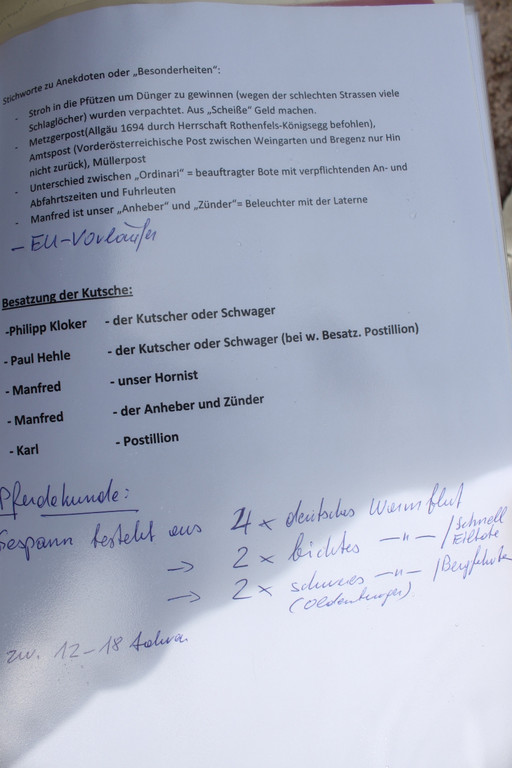 Stichworte zu Anekdoten oder „Besonderheiten“:
- Stroh in die Pfützen um Dünger zu gewinnen (wegen der schlechten Strassen viele
Schlaglöcher) wurden verpachtet. Aus „Scheiße“ Geld machen.
- Metzgerpost(Allgäu 1694 durch Herrschaft Rothenfels-Königsegg befohlen),
Amtspost (Vorderösterreichische Post zwischen Weingarten und Bregenz nur Hin
nicht zurück), Müllerpost
- Unterschied zwischen „Ordinari“ = beauftragter Bote mit verpflichtenden An- und
Abfahrtszeiten und Fuhrleuten
- Manfred ist unser „Anheber“ und „Zünder“= Beleuchter mit der Laterne
- EU-Vorläufer
Besatzung der Kutsche:
-Philipp Kloker - der Kutscher oder Schwager
- Paul Hehle - der Kutscher oder Schwager (bei w. Besatz. Postillion)
- Manfred - unser Hornist
- Manfred - der Anheber und Zünder
- Karl - Postillion
Pferdekunde:
Gespann besteht aus 4 x deutsches Warmblut
→ 2 x leichtes —"— / Schnell
Eilbote
→ 2 x schweres —"— / Bergfahrten
(Oldenburger).
zw. 12-18 Jahre